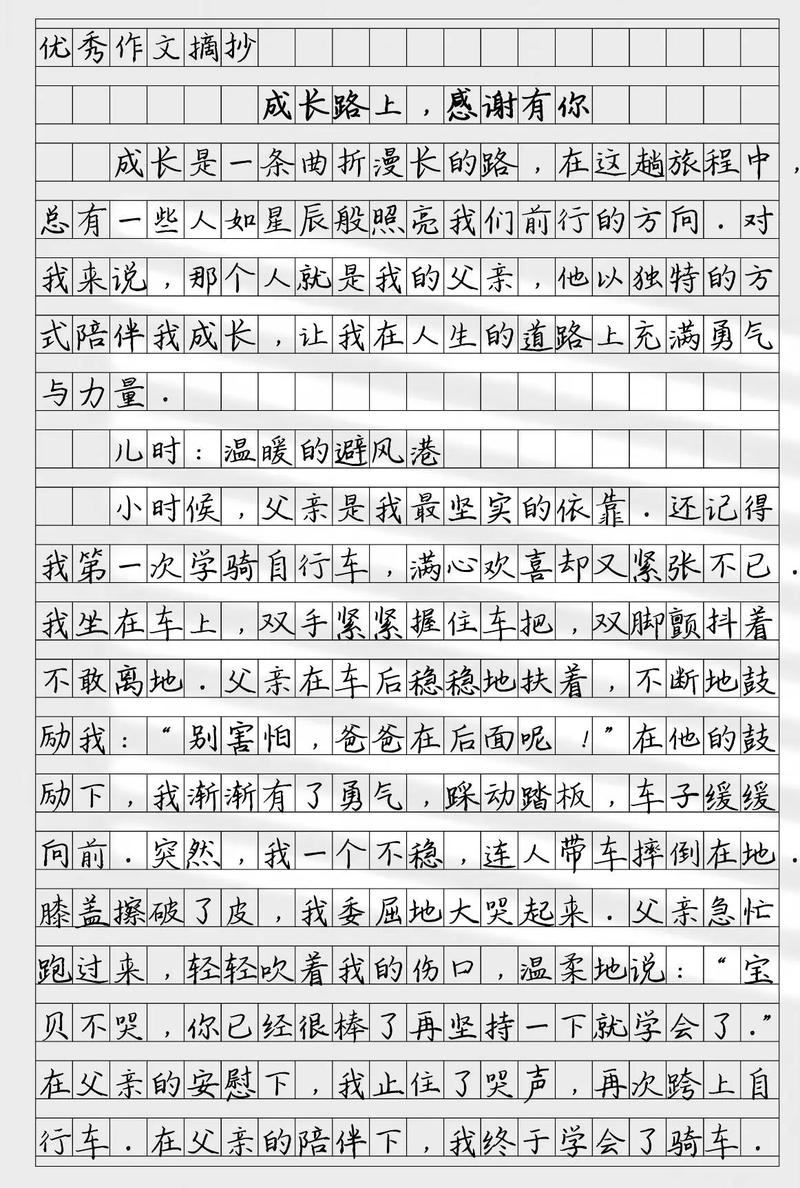 优秀作文摘抄
成长路上，感谢有你
成长是一条曲折漫长的路，在这趟旅程中，
总有一些人如星辰般照亮我们前行的方向．对
我来说，那个人就是我的父亲，他以独特的方
式陪伴我成长，让我在人生的道路上充满勇气
与力量．
儿时：温暖的避风港
小时候，父亲是我最坚实的依靠．还记得
我第一次学骑自行车，满心欢喜却又紧张不已．
我坐在车上，双手紧紧握住车把，双脚颤抖着
不敢离地．父亲在车后稳稳地扶着，不断地鼓
励我：“别害怕，爸爸在后面呢！”在他的鼓
励下，我渐渐有了勇气，踩动踏板，车子缓缓
向前．突然，我一个不稳，连人带车摔倒在地．
膝盖擦破了皮，我委屈地大哭起来．父亲急忙
跑过来，轻轻吹着我的伤口，温柔地说：“宝
贝不哭，你已经很棒了再坚持一下就学会了．”
在父亲的安慰下，我止住了哭声，再次跨上自
行车．在父亲的陪伴下，我终于学会了骑车．